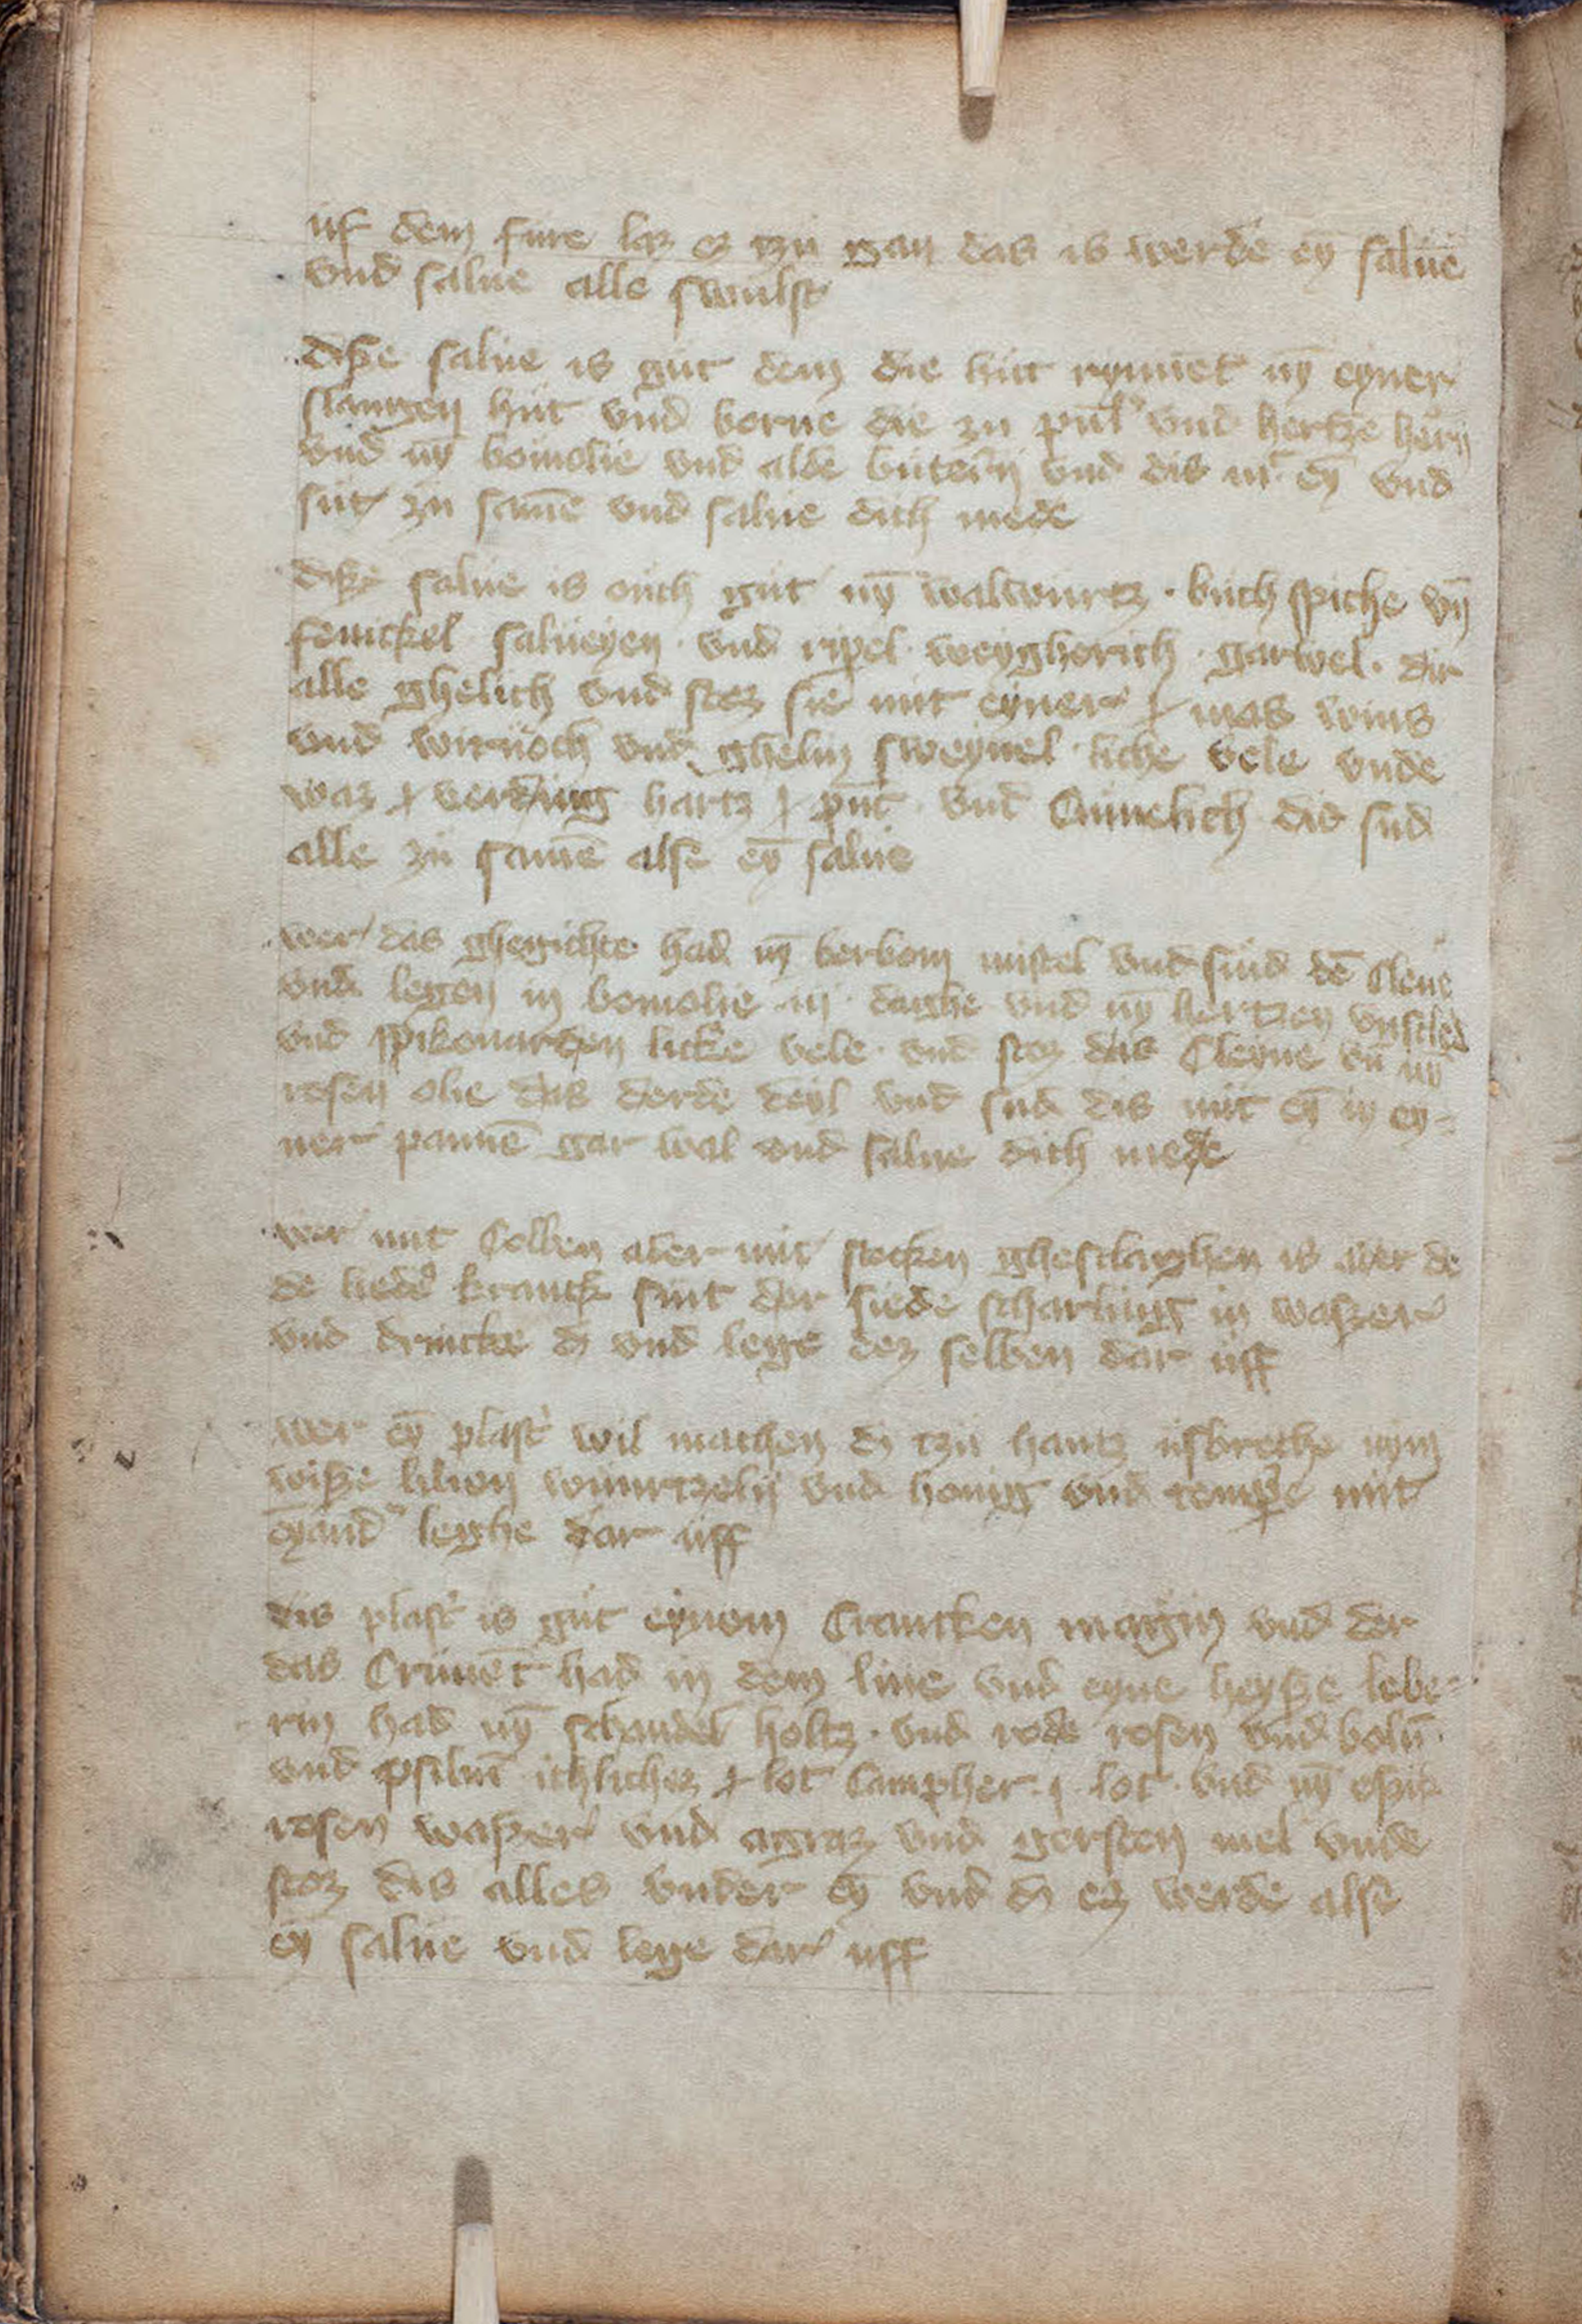 uf dem fure laz ez tzu gan das is werde ey̅ salue
vnd salue alle swulst
disse salue is gut dem die hut rymmet ny̅ eyner
slangen hut vnd borne die zu pul' vnd hertze horn
vnd ny̅ bomolie vnd alde buteren vnd dis mit ey̅ vnd
sut zu same̅ vnd salue dich mede
disse salue is ouch gut ny̅ walwurtz · buch spiche vn̅
fenickel salueyen · vnd ripel · weygherich · garwel · dir
alle ghelich vnd stoz sie mit eyner mas wins
vnd wiroch vnd ghelin sweynel liche vele vnde
waz verding hartz punt vnd dis sud
alle zu same̅ alse ey̅ salue
wer das ghegichte had ny̅ berbom mistel vnd snid de̅ cleyne
vnd legen in bomolie iii daghe vnd ny̅ hertzen vnsled
vnd spikonarden licke vele · vnd stoz das cleyne vn̅ ny̅
rosen olie das derde deyl vnd sud dis mit ey̅ in ey-
ner panne̅ gar wal vnd salue dich mede
wer mit colben ader mit stecken gheslaghen is ader de
de lieder kranck sint der siede scharling in wasser
vnd drincke dz vnd lege dez selben dar uff
wer ey̅ plast' wil machen dz tzu hantz ufbreche nym
wisse lilien wurtzeln vnd honig vnd tempere mit
eyand' leghe dar uff
dis plast' is gut eynem crancken magin vnd der
das crime̅t had in dem liue vnd eyne heysse lebe-
rin had ny̅ schandel holtz · vnd rode rosen vnd bolu̅ ·
vnd psiliu̅ ichlichez lot campher lot · vnd ny̅ essic
rosen wasser vnd agraz vnd gersten mel vnde
stoz dis alles vnder ey̅ vnd dz ez werde alse
ey̅ salue vnd lege dar uff